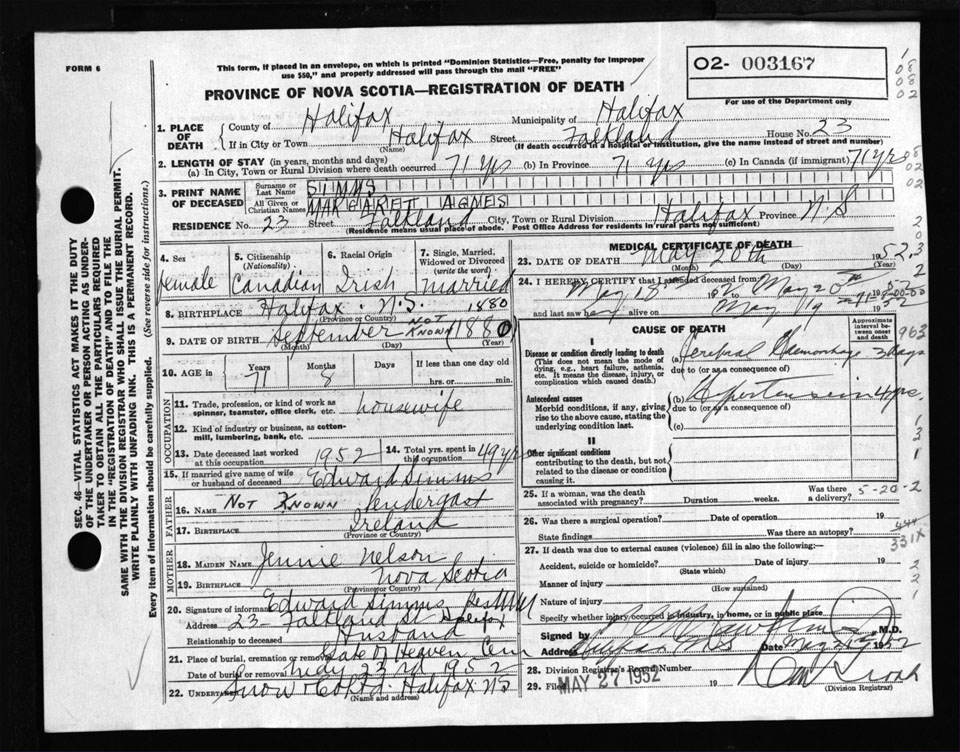 FORM 6
This form, if placed in an envelope, on which is printed "Dominion Statistics—Free, penalty for improper
use $50," and properly addressed will pass through the mail "FREE"
O2- 003167
For use of the Department only
PROVINCE OF NOVA SCOTIA—REGISTRATION OF DEATH
1. PLACE OF DEATH
County of Halifax Municipality of Halifax
If in City or Town Halifax Street Falkland House No. 23
(Name) (If death occurred in a hospital or institution, give the name instead of street and number)
2. LENGTH OF STAY (in years, months and days)
(a) In City, Town or Rural Division where death occurred 71 yrs (b) In Province 71 yrs (c) In Canada (if immigrant) 71 yrs
3. PRINT NAME OF DECEASED
Surname or Last Name SIMMS
All Given or Christian Names MARGARET AGNES
RESIDENCE No. 23 Street Falkland City, Town or Rural Division Halifax Province N.S
(Residence means usual place of abode. Post Office Address for residents in rural parts not sufficient)
4. Sex female
5. Citizenship (Nationality) Canadian
6. Racial Origin Irish
7. Single, Married, Widowed or Divorced (write the word) married
8. BIRTHPLACE Halifax N.S. 1880
(Province or Country)
9. DATE OF BIRTH September NOT KNOWN 1880
(Month) (Day) (Year)
10. AGE Years 71 Months 8 Days If less than one day old
hrs. or min.
OCCUPATION
11. Trade, profession, or kind of work as spinner, teamster, office clerk, etc. housewife
12. Kind of industry or business, as cotten-mill, lumbering, bank, etc.
13. Date deceased last worked at this occupation 1952
14. Total yrs. spent in this occupation 49 yrs
15. If married give name of wife or husband of deceased Edward Simms
FATHER
16. NAME NOT KNOWN Pendergast
17. BIRTHPLACE Ireland
(Province or Country)
MOTHER
18. MAIDEN NAME Jennie Nelson
19. BIRTHPLACE Nova Scotia
(Province or Country)
20. Signature of informant Edward Simms
Address 23 Falkland St Halifax
Relationship to deceased Husband
21. Place of burial, cremation or removal Gate of Heaven Cem
Date of burial or removal May 23rd 1952
22. Undertaker Snow & Co Ltd. Halifax NS
(Name and address)
MEDICAL CERTIFICATE OF DEATH
23. DATE OF DEATH May 20th 1952
(Month) (Day)
24. I HEREBY CERTIFY that I attended deceased from
May 18 1952 May 20th 1952
and last saw her alive on May 19 1952
CAUSE OF DEATH
Approximate interval between onset and death
I
Disease or condition directly leading to death
(This does not mean the mode of dying, e.g., heart failure, asthenia, etc. It means the disease, injury, or complication which caused death.)
(a) Cerebral Haemorrhage 3 days
due to (or as a consequence of)
Antecedent causes
Morbid conditions, if any, giving rise to the above cause, stating the underlying condition last.
(b) Hypertension 4 yrs.
due to (or as a consequence of)
(c)
II
Other significant conditions
contributing to the death, but not related to the disease or condition causing it.
25. If a woman, was the death associated with pregnancy? Duration weeks. Was there a delivery? 5-20-2
26. Was there a surgical operation? Date of operation 19
State findings Was there an autopsy?
444
331X
27. If death was due to external causes (violence) fill in also the following:—
Accident, suicide or homicide? Date of injury 19
(State which)
Manner of injury
(How sustained)
Nature of injury
Specify whether injury occurred in industry, in home, or in public place
Signed by M.D.
Address Halifax NS Date May 1952
28. Division Registrar's Record Number
29. Filed MAY 27 1952 19
(Division Registrar)
SEC. 46—VITAL STATISTICS ACT MAKES IT THE DUTY
OF THE UNDERTAKER OR PERSON ACTING AS UNDER-
TAKER TO OBTAIN ALL THE PARTICULARS REQUIRED
IN THE "REGISTRATION OF DEATH" AND TO FILE THE
SAME WITH THE DIVISION REGISTRAR WHO SHALL ISSUE THE BURIAL PERMIT.
WRITE PLAINLY WITH UNFADING INK. THIS IS A PERMANENT RECORD.
Every item of information should be carefully supplied. (See reverse side for instructions.)